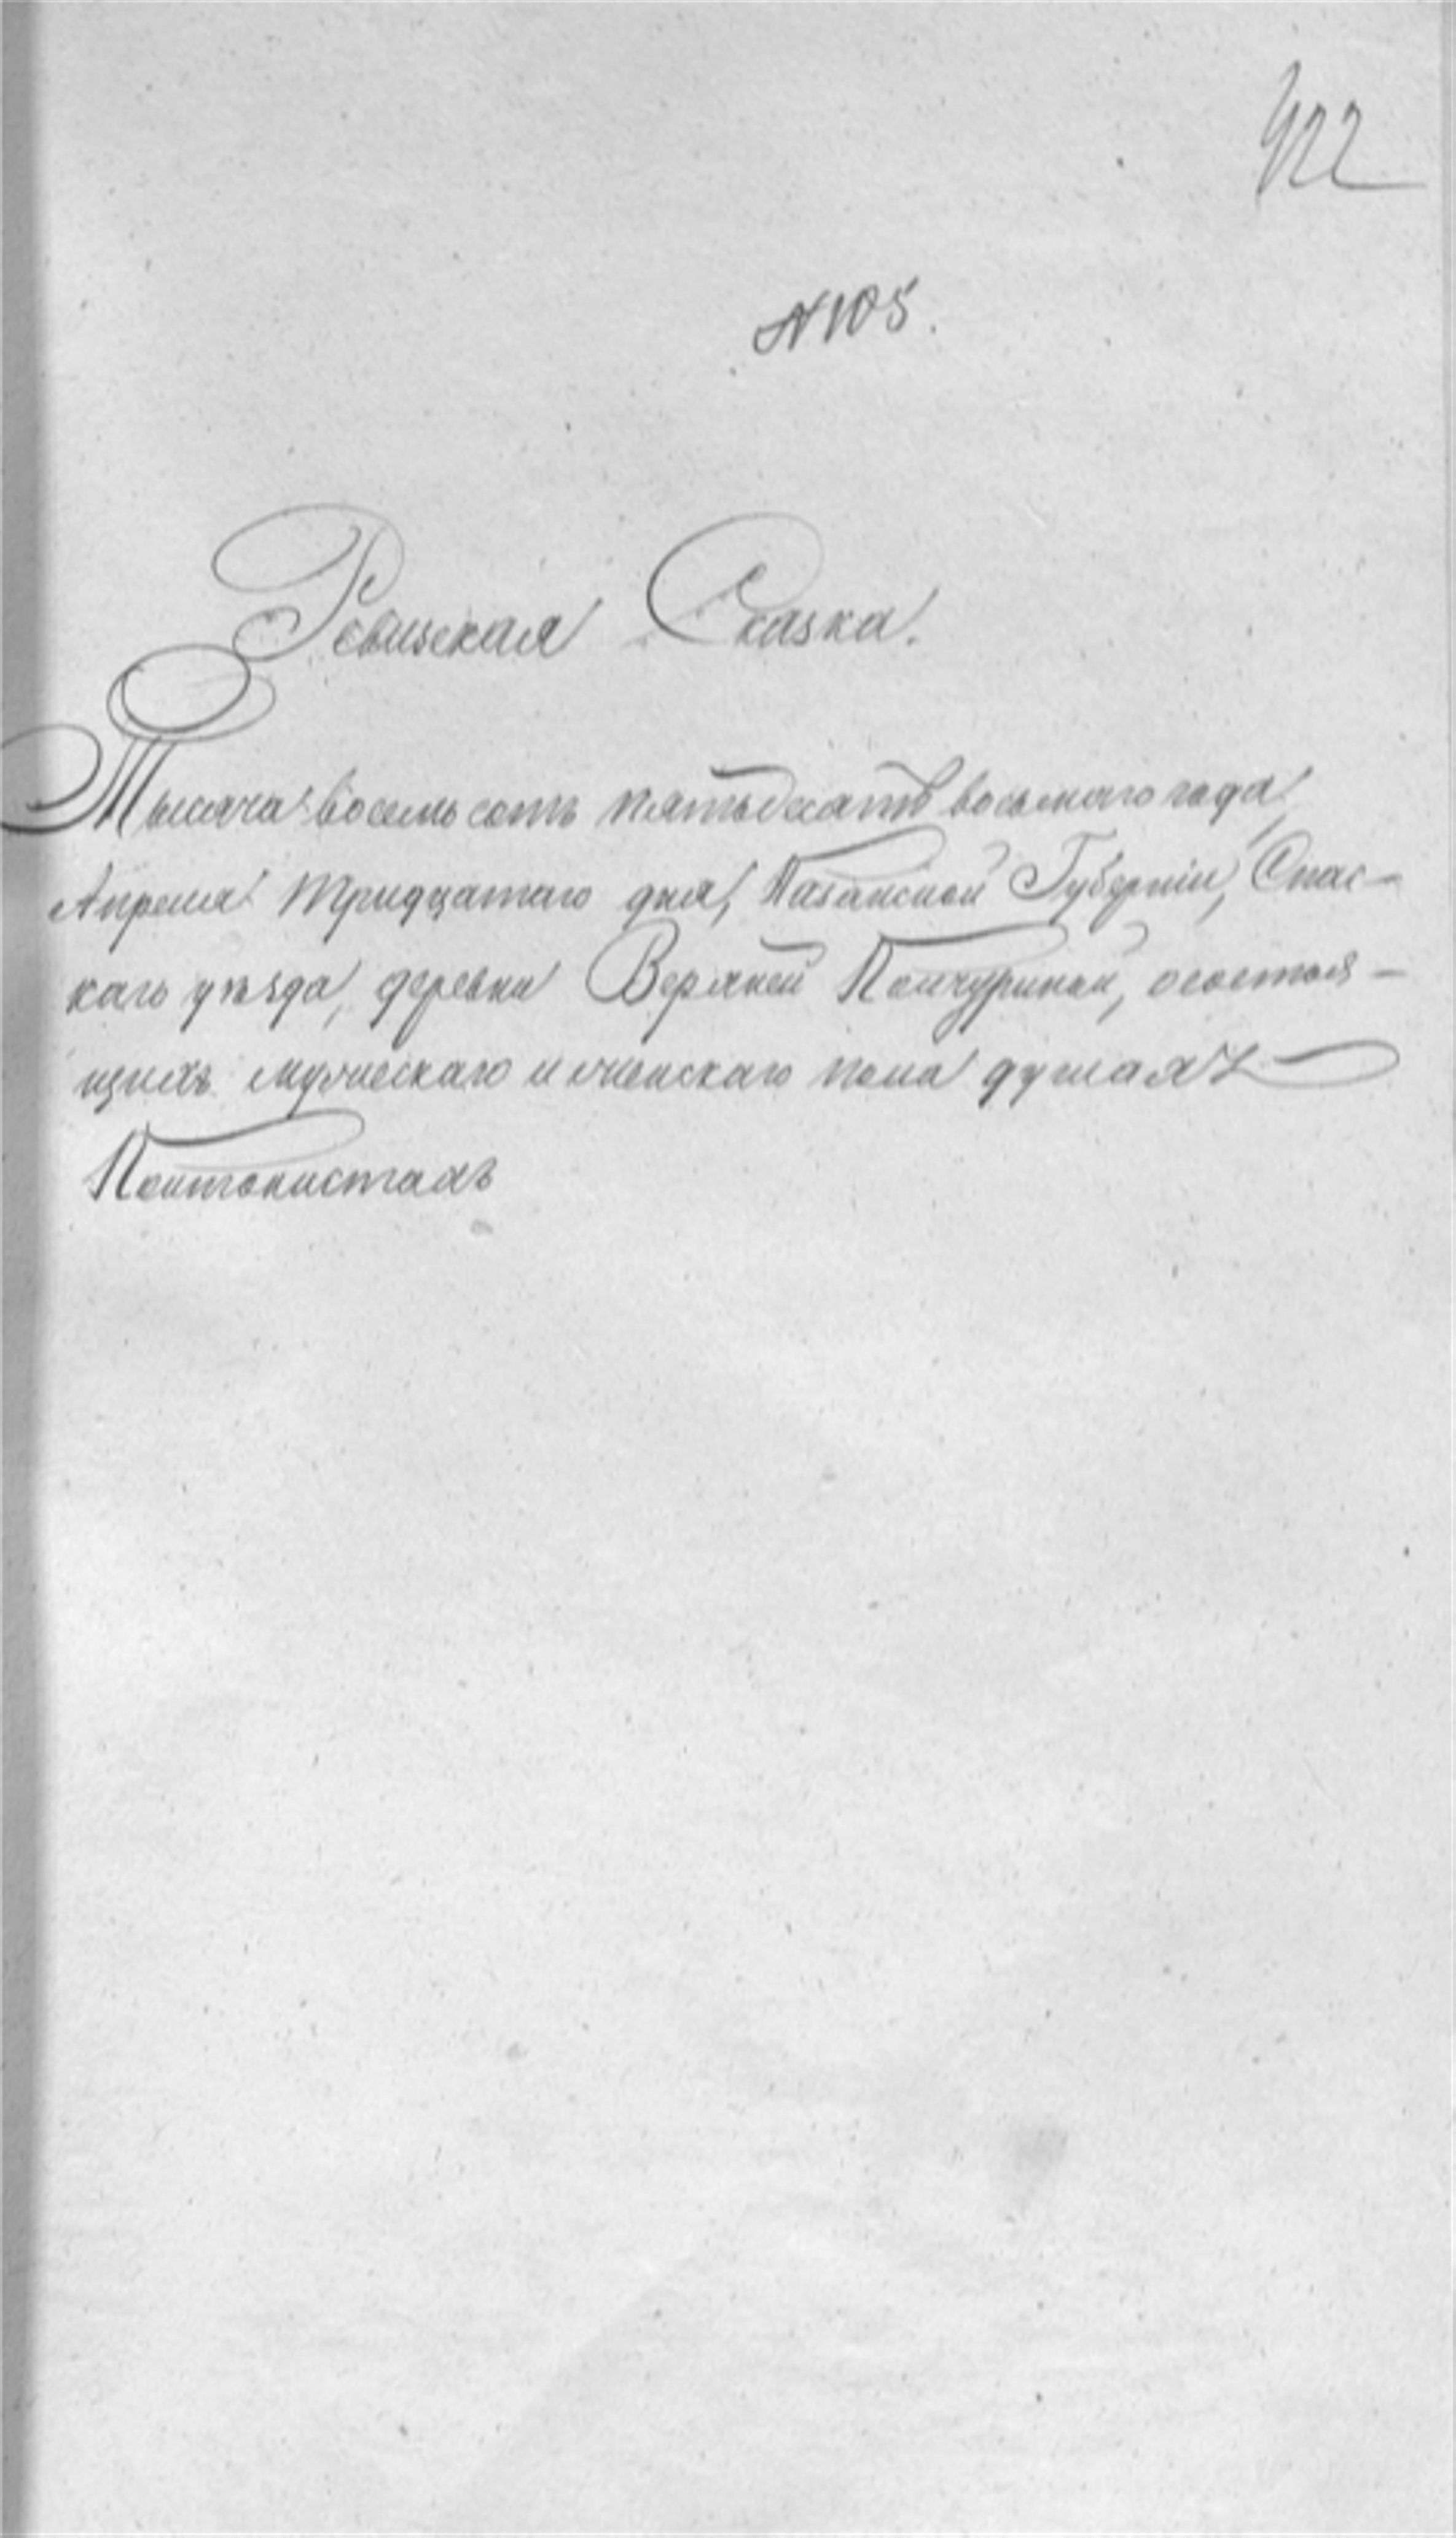 422
№105.
Ревизская Сказка.
Тысяча восемь сотъ пятьдесятъ восьмаго года
Апреля Тридцатаго дня, Казанской Губерніи, Спас-
каго уѣзда, деревни Верхней Кончуриной, о состоя-
щихъ мужескаго и женскаго пола душахъ
Кантонистахъ